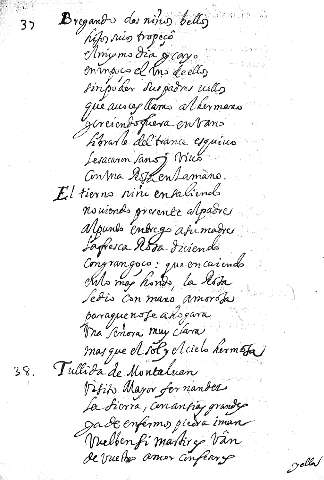 37 Bregando dos niños bellos
hijos suios tropeço
el mismo dia y cayo
en un poço el vno de ellos
sin poder sus padres
que auces llama al hermano
y creciendo fuera en vano
librarle del trance esquiuo
le sacaron sano y viuo
con vna Rosa en la mano.
El tierno niño en saliendo
no viendo presente al padre
al punto entrego a su madre
la fresca Rosa diciendo
con gran goço: que en caiendo
en lo mas hondo, la Rosa
le dio con mano amorosa
para que no se ahogara
Vna señora muy clara
mas que el sol y el cielo hermosa
38. Tullida de Montaluan
Visito Mayor fernandez
la tierra, con ansias grandes
ya de enfermos piedra iman
Vuelben si martires van
de vuestro amor confiares
y ellos